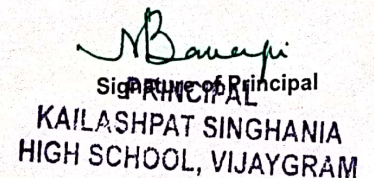 NBanerji
Signature of Principal
PRINCIPAL
KAILASHPAT SINGHANIA
HIGH SCHOOL, VIJAYGRAM